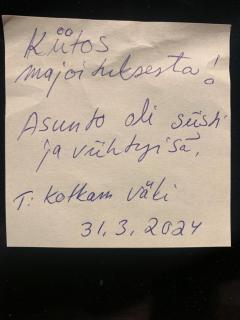 Kiitos
majoituksesta!
Asunto oli siisti
ja viihtyisä.
T: Kotkam väki
31.3.2024